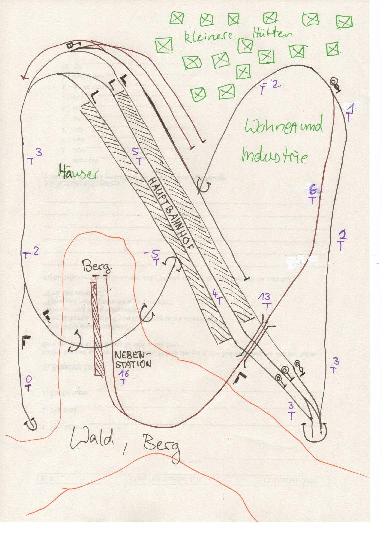 kleinere Hütten
-2
T
1
T
Wohng und
Industrie
3
T
5
T
Häuser
HAUPTBAHNHOF
6
T
2
T
-2
T
-5
T
Berg
4
T
13
T
NEBEN-
STATION
16
T
0
T
3
T
3
T
Wald, Berg